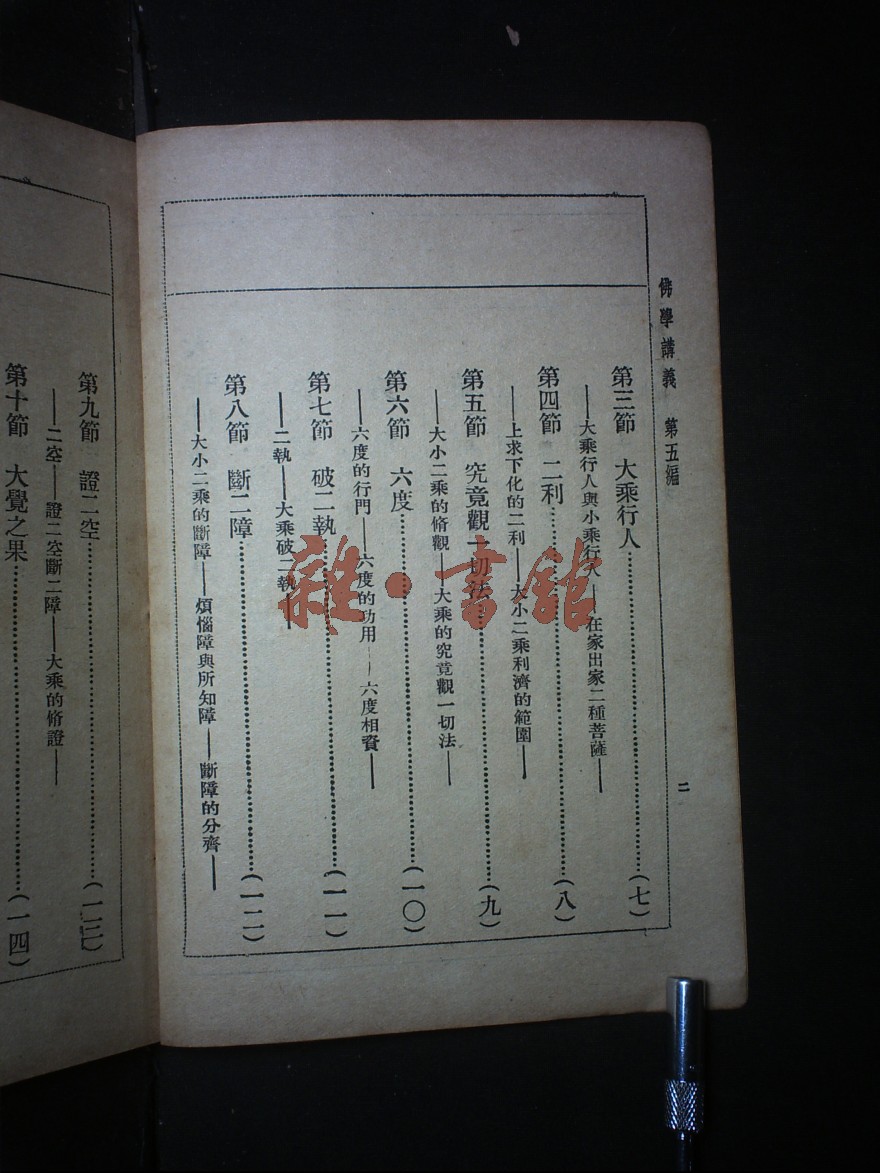 佛學講義　第五編
二
第三節　大乘行人……………………(七)
——大乘行人與小乘行人——在家出家二種菩薩——
第四節　二利……………………(八)
——上求下化的二利——大小二乘利濟的範圍——
第五節　究竟觀一切法……………………(九)
——大小二乘的脩觀——大乘的究竟觀一切法——
第六節　六度……………………(一〇)
——六度的行門——六度的功用——六度相資——
第七節　破二執……………………(一一)
——二執——大乘破二執——
第八節　斷二障……………………(一二)
——大小二乘的斷障——煩惱障與所知障——斷障的分齊——
第九節　證二空……………………(一三)
——二空——證二空斷二障——大乘的脩證——
第十節　大覺之果……………………(一四)
雜·書館